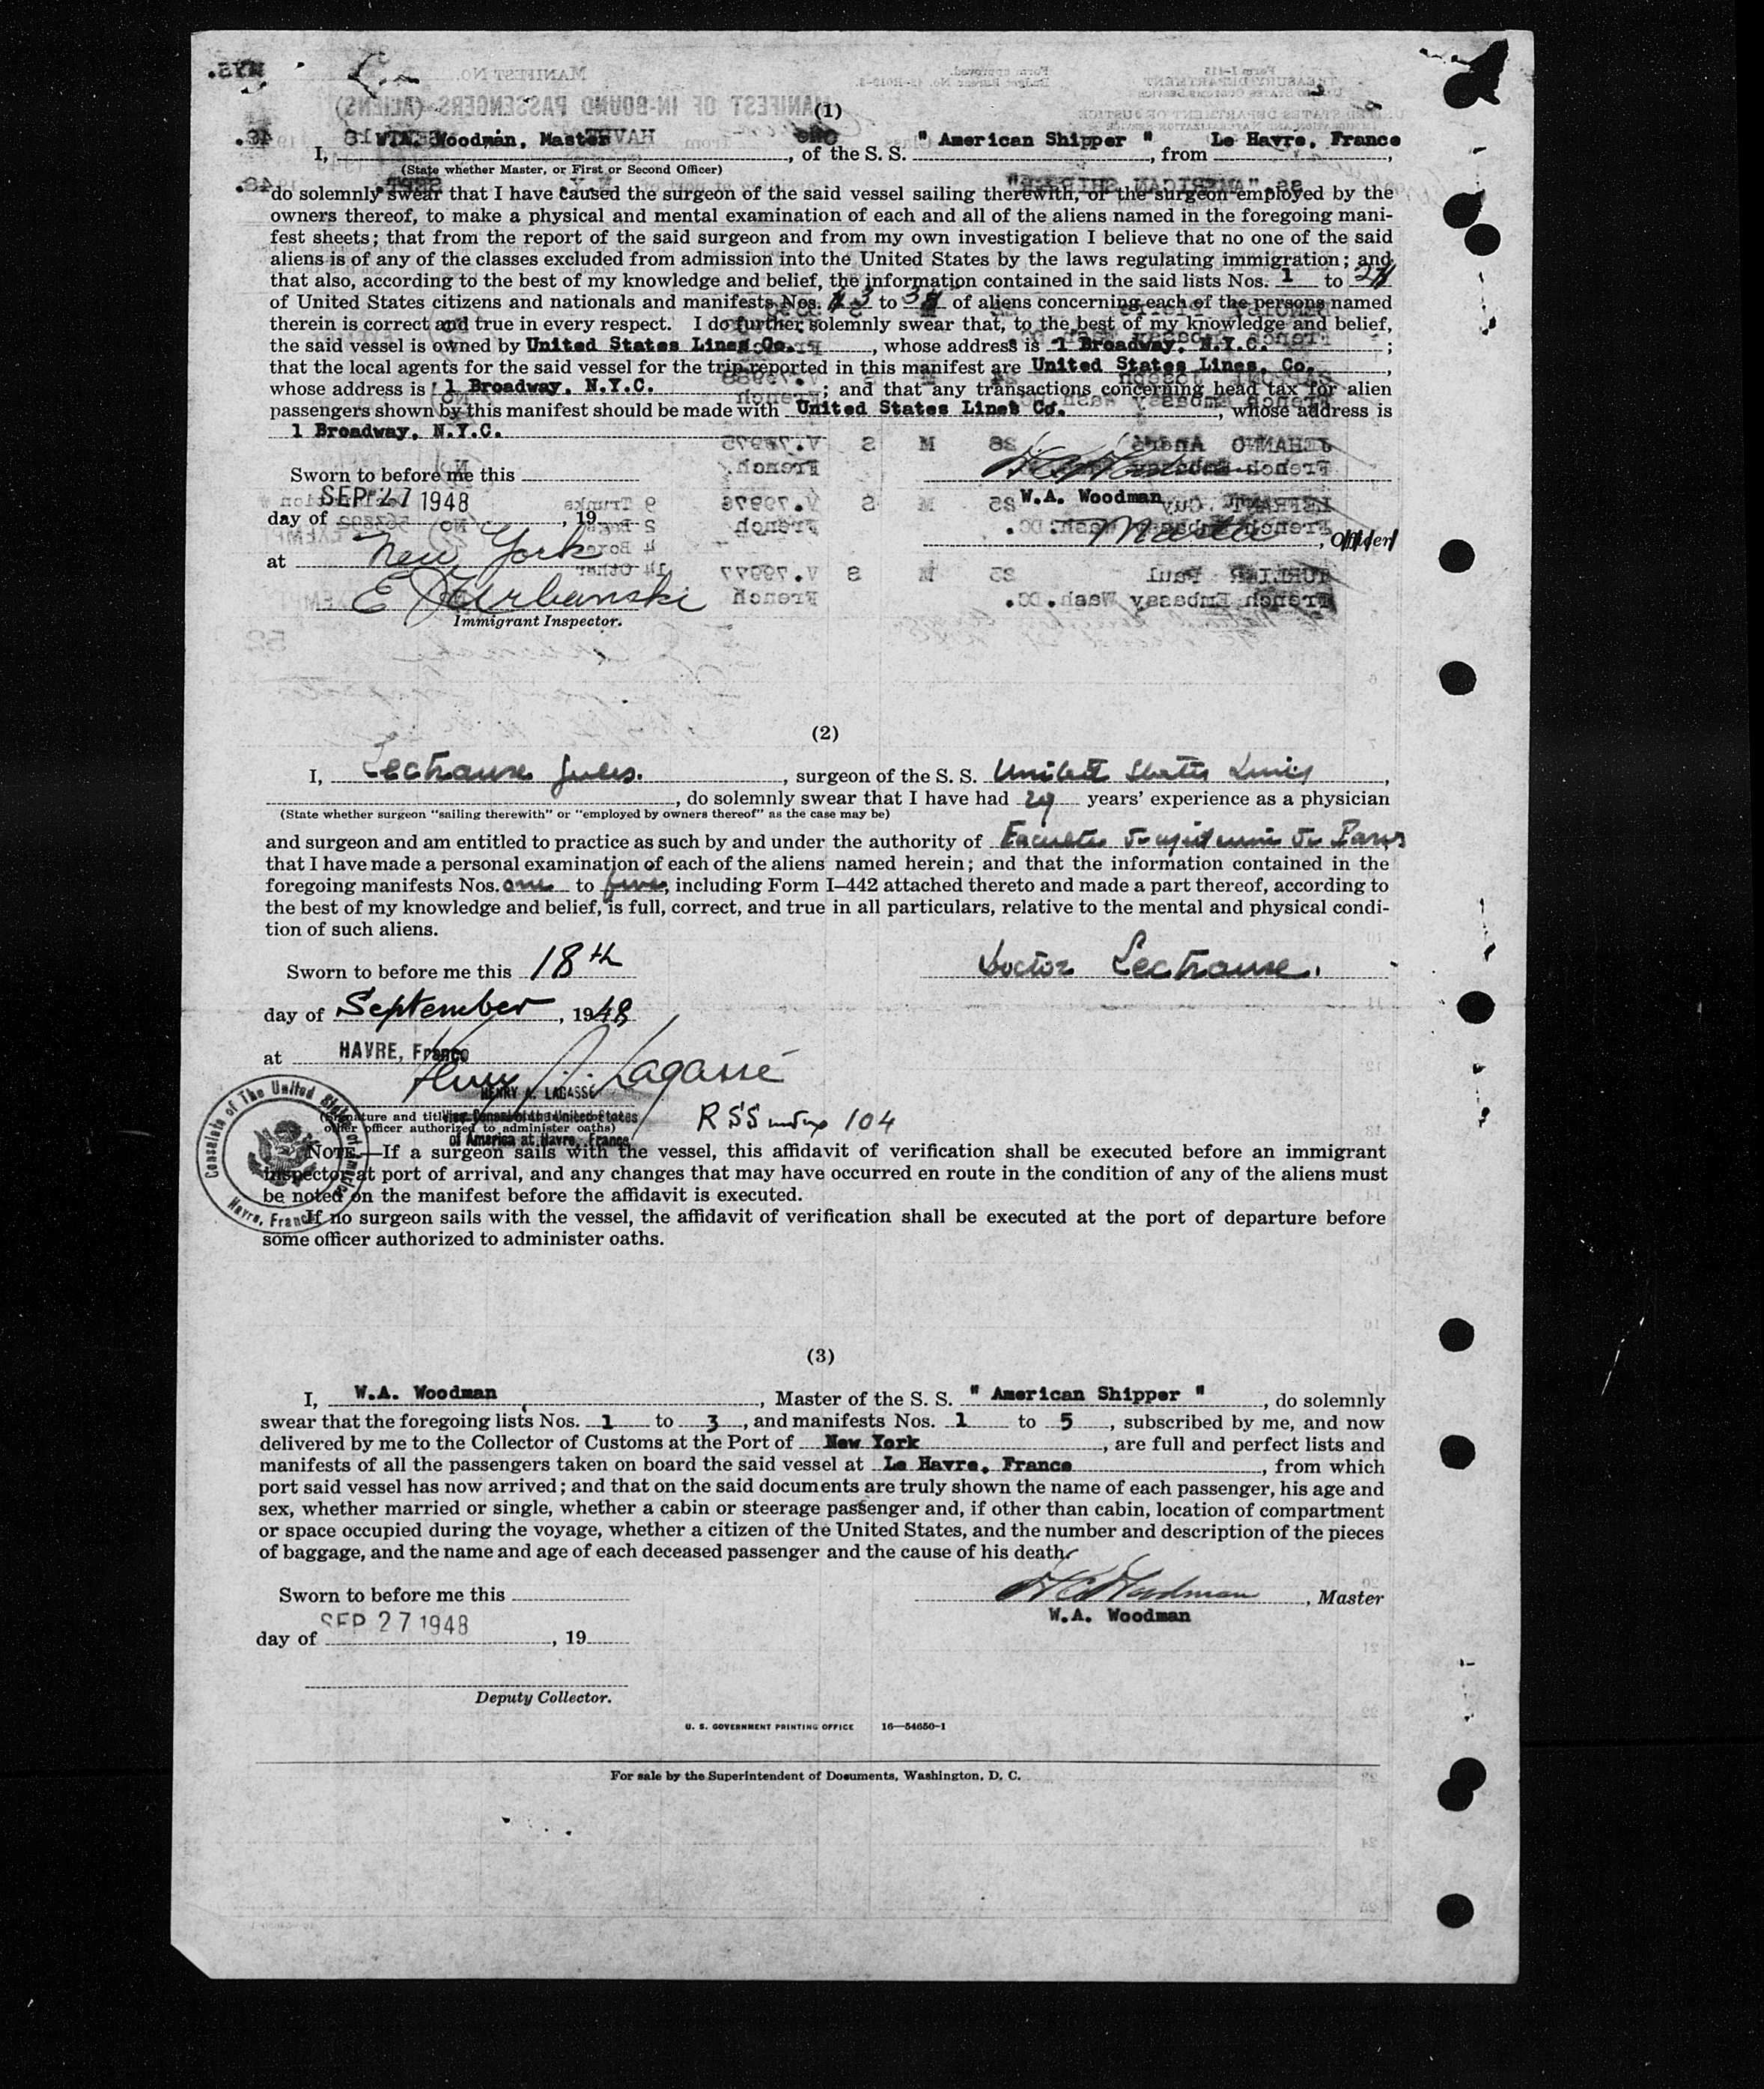 (1)
I, W.A. Woodman, Master, of the S. S. " American Shipper ", from Le Havre, France,
(State whether Master, or First or Second Officer)
do solemnly swear that I have caused the surgeon of the said vessel sailing therewith, or the surgeon employed by the
owners thereof, to make a physical and mental examination of each and all of the aliens named in the foregoing mani-
fest sheets; that from the report of the said surgeon and from my own investigation I believe that no one of the said
aliens is of any of the classes excluded from admission into the United States by the laws regulating immigration; and
that also, according to the best of my knowledge and belief, the information contained in the said lists Nos. 1 to 2
of United States citizens and nationals and manifests Nos. 3 to 3 of aliens concerning each of the persons named
therein is correct and true in every respect. I do further solemnly swear that, to the best of my knowledge and belief,
the said vessel is owned by United States Lines Co., whose address is 1 Broadway, N.Y.C. ;
that the local agents for the said vessel for the trip reported in this manifest are United States Lines, Co.,
whose address is 1 Broadway, N.Y.C. ; and that any transactions concerning head tax for alien
passengers shown by this manifest should be made with United States Lines Co., whose address is
1 Broadway, N.Y.C.
Sworn to before me this
SEP 27 1948
W.A. Woodman
day of , 19
Master, Officer
at New York
E Urbanski
Immigrant Inspector.
(2)
I, Lectrause Jules., surgeon of the S. S. United States Lines,
, do solemnly swear that I have had 29 years' experience as a physician
(State whether surgeon "sailing therewith" or "employed by owners thereof" as the case may be)
and surgeon and am entitled to practice as such by and under the authority of Faculte de Paris
that I have made a personal examination of each of the aliens named herein; and that the information contained in the
foregoing manifests Nos. one to five, including Form I–442 attached thereto and made a part thereof, according to
the best of my knowledge and belief, is full, correct, and true in all particulars, relative to the mental and physical condi-
tion of such aliens.
Sworn to before me this 18th
Doctor Lectrause.
day of September, 1948
at HAVRE, France
Henry A. Lagassé
HENRY A. LAGASSÉ
(Signature and title of consul or other officer authorized to administer oaths)
Vice Consul of the United States
of America at Havre, France
RSS 104
Consulate of The United States of America
Havre, France
NOTE.—If a surgeon sails with the vessel, this affidavit of verification shall be executed before an immigrant
inspector at port of arrival, and any changes that may have occurred en route in the condition of any of the aliens must
be noted on the manifest before the affidavit is executed.
If no surgeon sails with the vessel, the affidavit of verification shall be executed at the port of departure before
some officer authorized to administer oaths.
(3)
I, W.A. Woodman, Master of the S. S. " American Shipper ", do solemnly
swear that the foregoing lists Nos. 1 to 3, and manifests Nos. 1 to 5, subscribed by me, and now
delivered by me to the Collector of Customs at the Port of New York, are full and perfect lists and
manifests of all the passengers taken on board the said vessel at Le Havre, France, from which
port said vessel has now arrived; and that on the said documents are truly shown the name of each passenger, his age and
sex, whether married or single, whether a cabin or steerage passenger and, if other than cabin, location of compartment
or space occupied during the voyage, whether a citizen of the United States, and the number and description of the pieces
of baggage, and the name and age of each deceased passenger and the cause of his death.
Sworn to before me this
W A Woodman, Master
W.A. Woodman
SEP 27 1948
day of , 19
Deputy Collector.
U. S. GOVERNMENT PRINTING OFFICE 16—54650-1
For sale by the Superintendent of Documents, Washington, D. C.